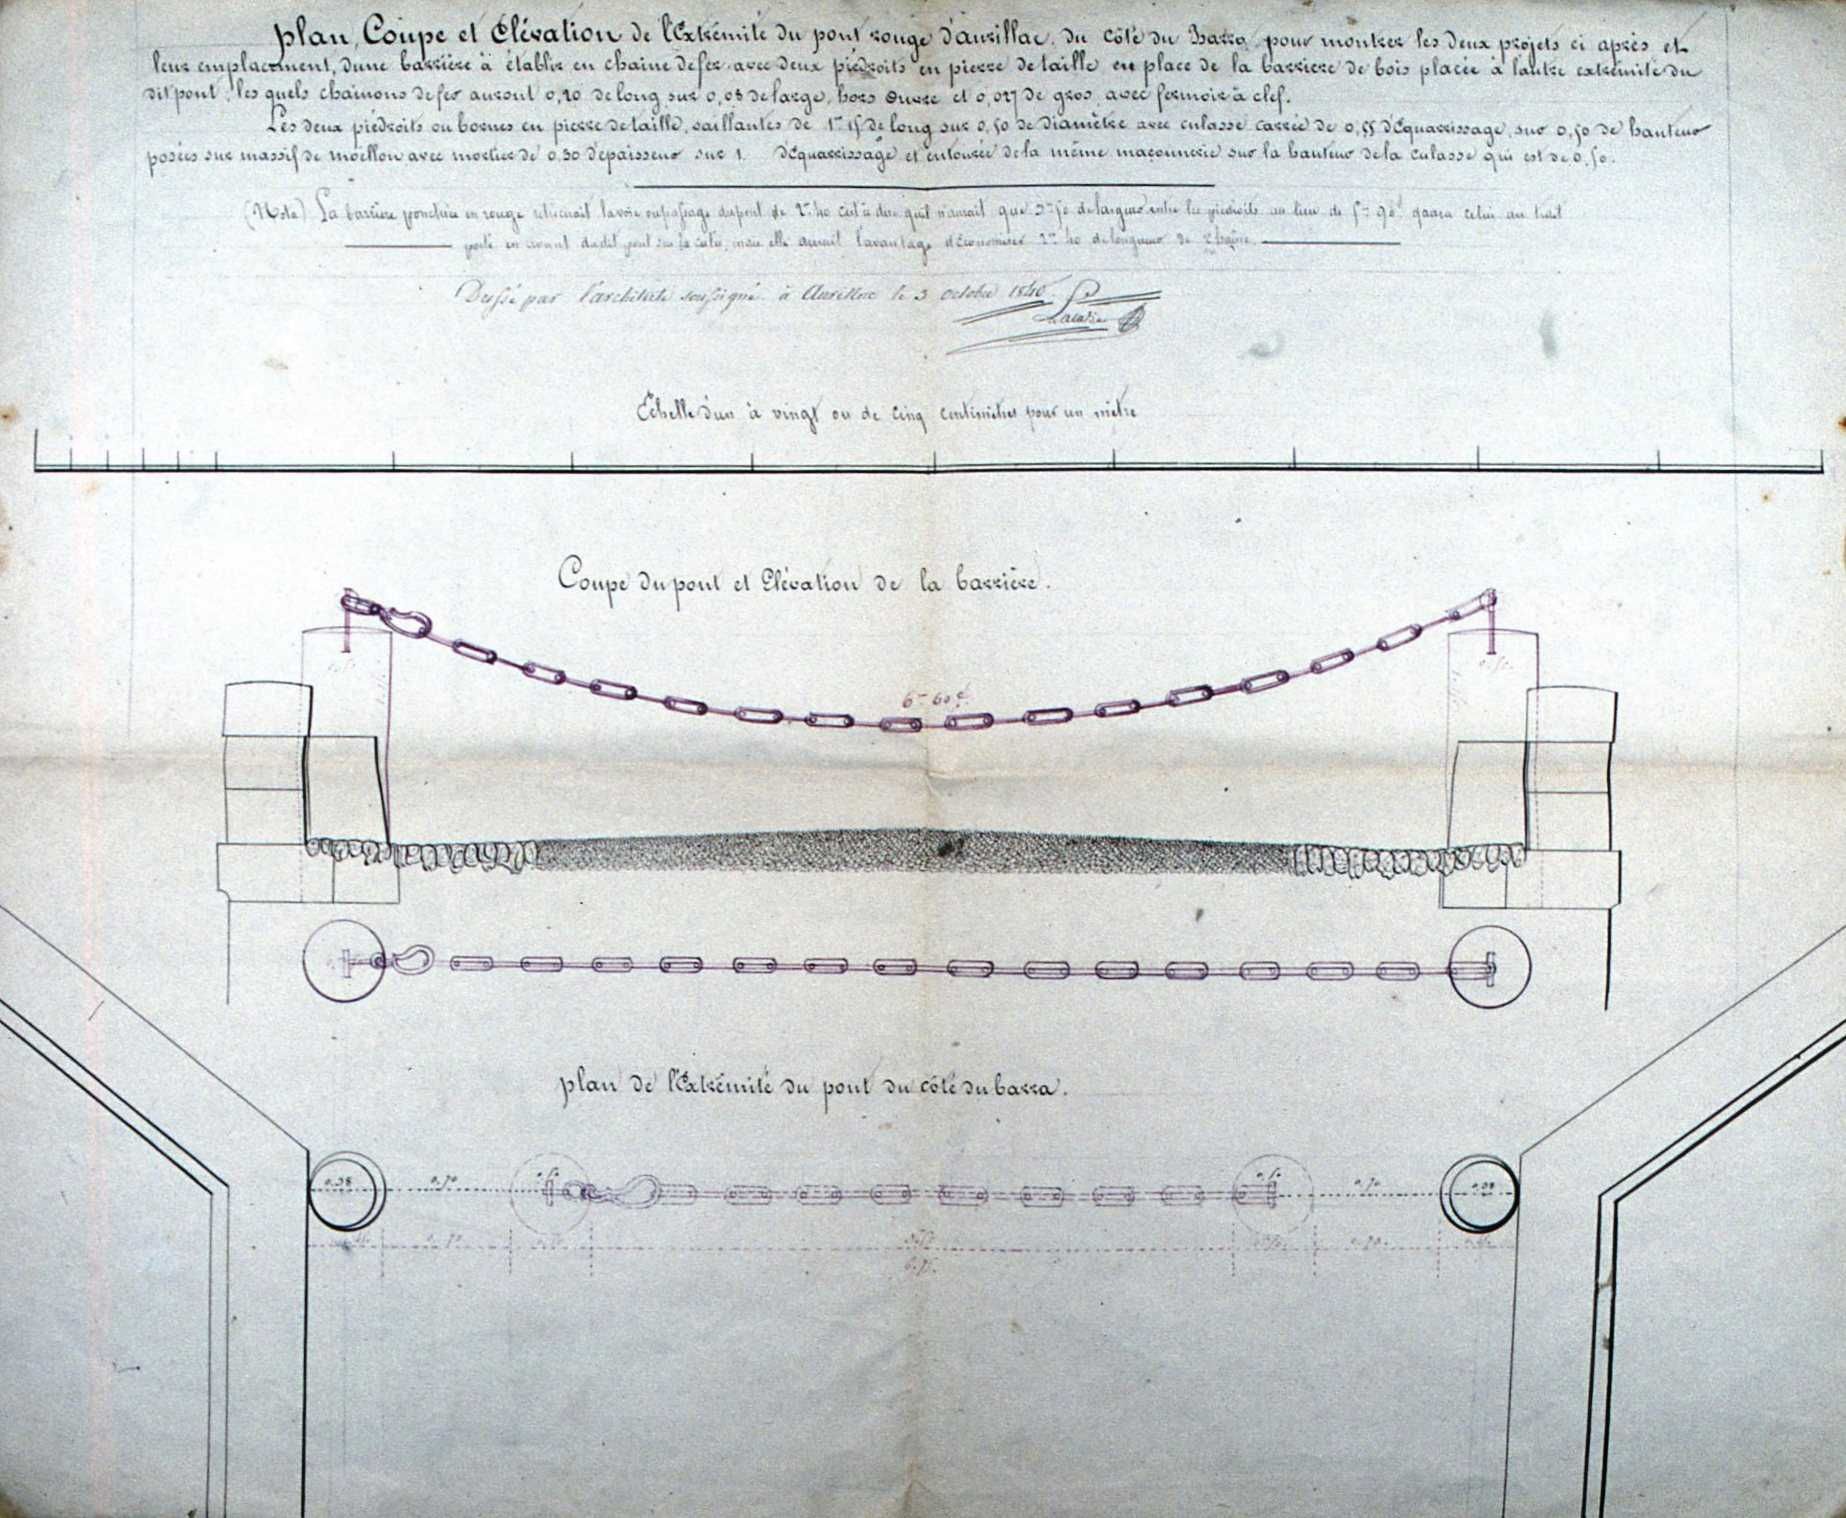 plan, Coupe et Élévation de l'Extrémité du pont rouge d'aurillac, du côté du Barra, pour montrer les deux projets ci après et
leur emplacement, dune barrière à établir en chaine de fer avec deux piédroits en pierre de taille en place de la barriere de bois placée à lautre extrémité du
dit pont, les quels chainons de fer auront 0,20 de long sur 0,08 de large, hors œuvre et 0,027 de gros, avec fermoir à clef.
Les deux piédroits ou bornes en pierre de taille, saillantes de 1m 15 de long sur 0,50 de diamètre avec culasse carrée de 0,55 d'Equarrissage, sur 0,50 de hauteur
posées sur massif de moëllon avec mortier de 0,30 d'epaisseur sur 1. d'Equarrissage et entourée de la même maçonnerie sur la hauteur de la culasse qui est de 0,50.
(Nota) La barrière ponctuée en rouge retrecirait la voie ou passage du pont de 2m 40 c'est à dire qu'il n'aurait que 3m 50 de largeur entre les piedroits au lieu de 5m 90c qu'aura celui au trait
porté en avant dudit pont, mais elle aurait l'avantage d'économiser 2m 40 de longueur de chaîne.
Dressé par l'architecte soussigné à Aurillac le 3 octobre 1840.
Échelle d'un à vingt ou de cinq centimètres pour un mètre
Coupe du pont et Élévation de la barrière.
6m 60c
plan de l'Extrémité du pont du côté du barra.
0.38 0.70 0.70 0.38